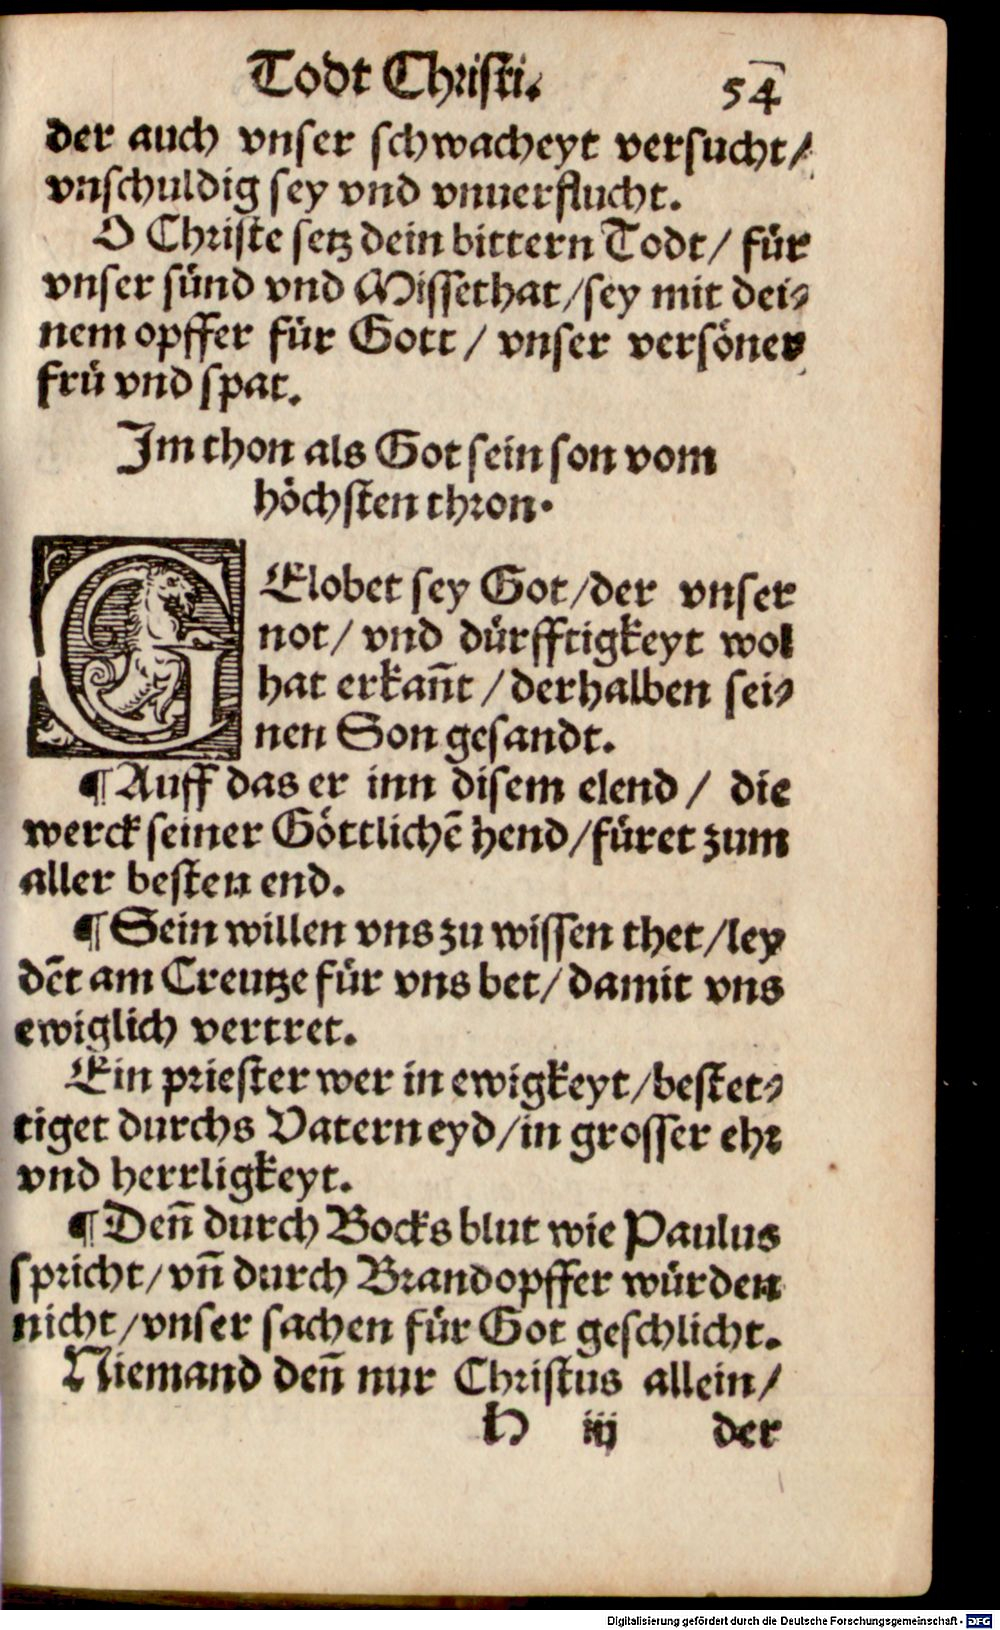 Todt Christi. 54
der auch vnser schwacheyt versucht/
vnschuldig sey vnd vnuerflucht.
O Christe setz dein bittern Todt/ für
vnser sünd vnd Missethat/sey mit dei⸗
nem opffer für Gott/ vnser versöner
frü vnd spat.
Im thon als Got sein son vom
höchsten thron.
GElobet sey Got/der vnser
not/ vnd dürfftigkeyt wol
hat erkañt/derhalben sei⸗
nen Son gesandt.
¶Auff das er inn disem elend/ die
werck seiner Göttlichē hend/füret zum
aller besten end.
¶Sein willen vns zu wissen thet/ley
dēt am Creutze für vns bet/damit vns
ewiglich vertret.
Ein priester wer in ewigkeyt/bestet⸗
tiget durchs Vatern eyd/in grosser ehr
vnd herrligkeyt.
¶Deñ durch Bocks blut wie Paulus
spricht/vñ durch Brandopffer würden
nicht/vnser sachen für Got geschlicht.
Niemand deñ nur Christus allein/
H iij der
Digitalisierung gefördert durch die Deutsche Forschungsgemeinschaft - DFG